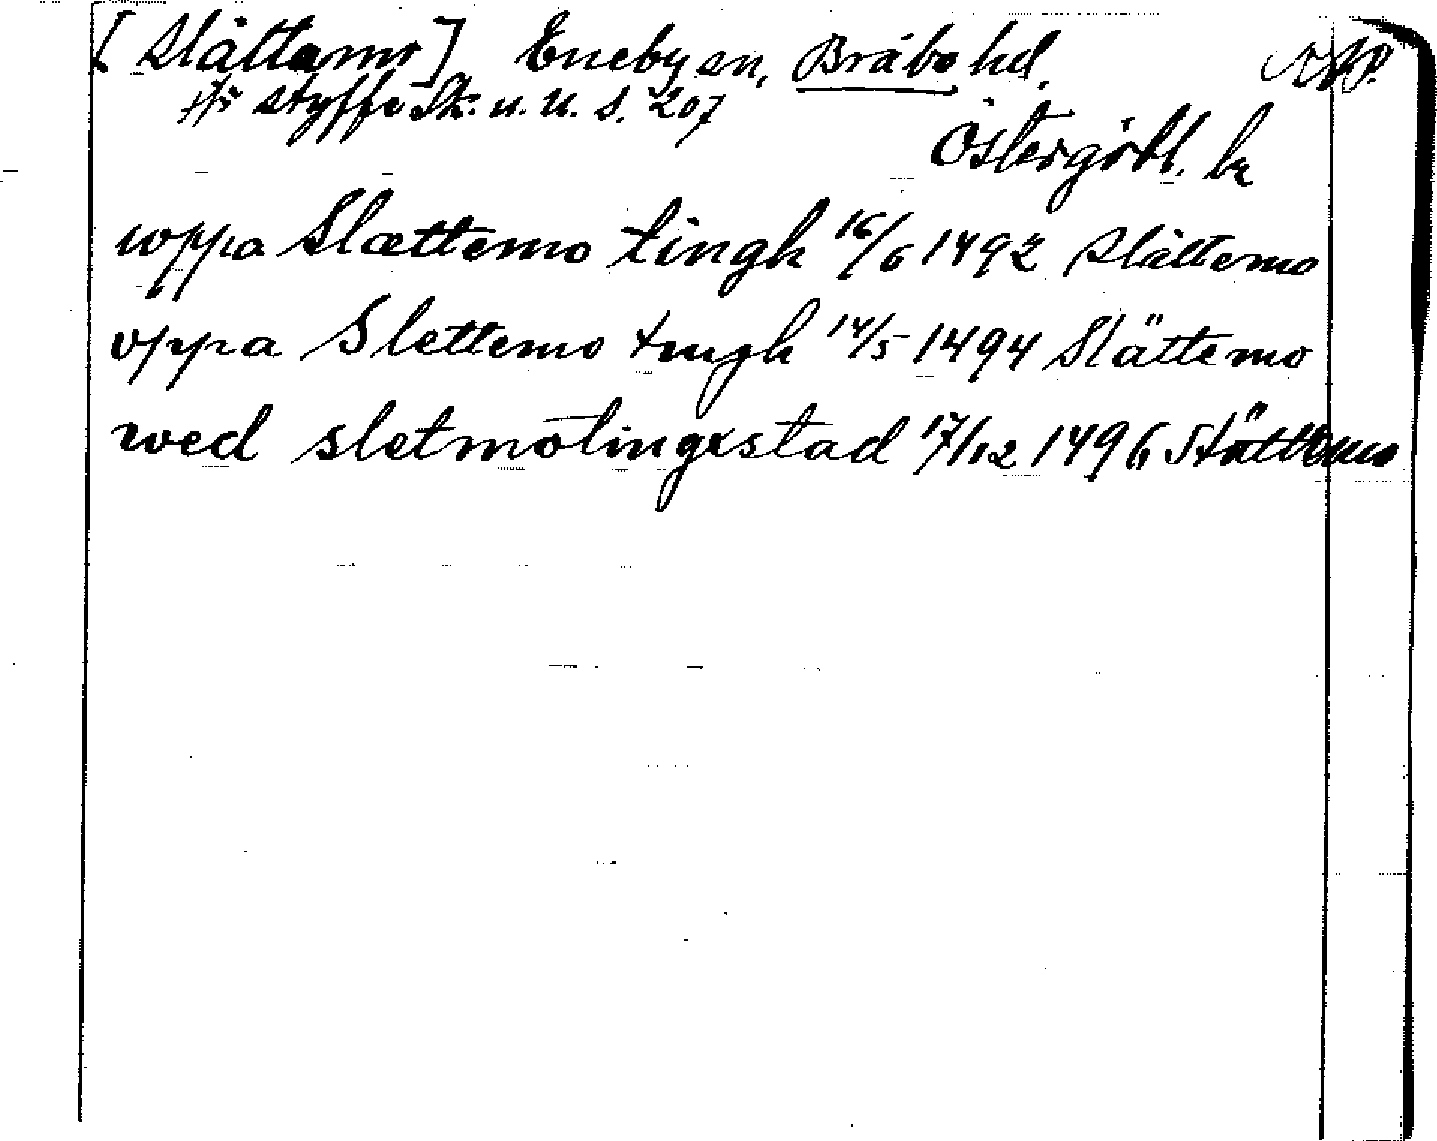 [Slättamo] Eneby sn, Bråbo hd,
jfr Styffe Sk. u. U. s. 207
Östergötl. ln
wppa Slættemo tingh 16/6 1492 Slättemo
vppa Slettemo tingh 14/5 1494 Slättemo
wed sletmotingxstad 17/12 1496 Slättemo